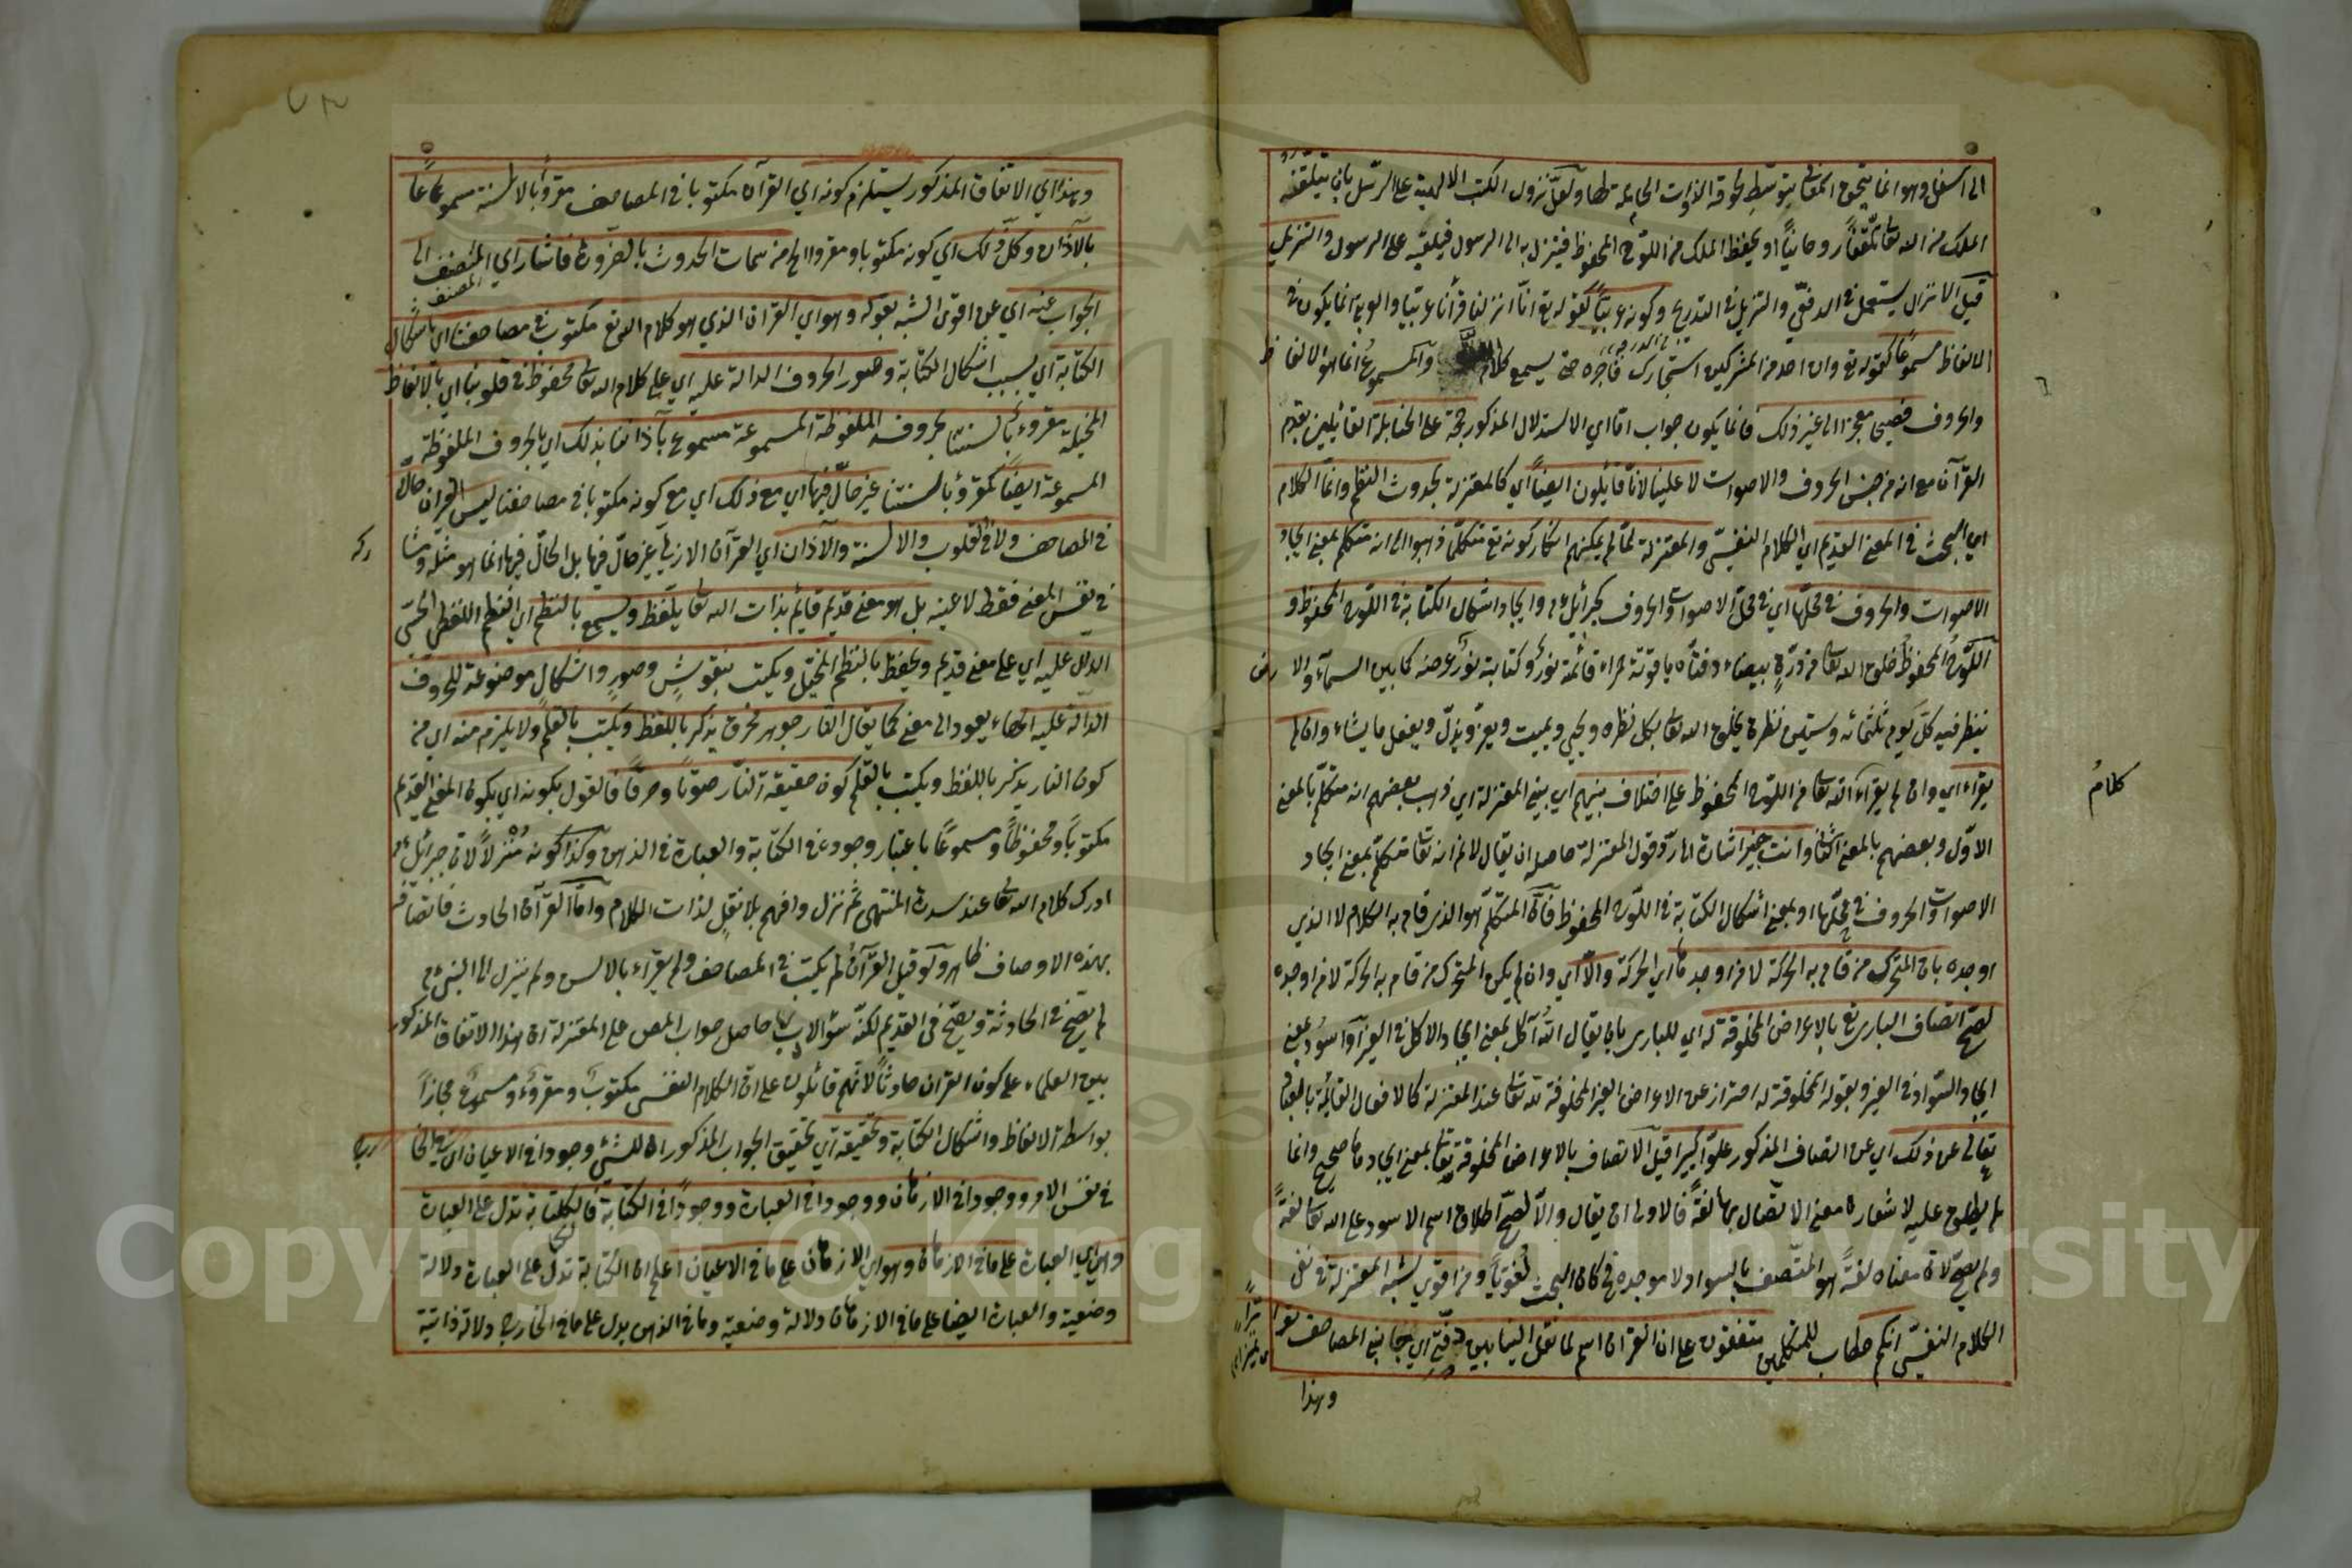 الى اسفل وهو انما يلحق المعانى بتوسط لحوقه الذوات الحاملة لها ولعل نزول الكتب الالهية على الرسل بان يتلقفه
الملك من الله تعا تلقفا روحانيا او يحفظ الملك من اللوح المحفوظ فينزل به الى الرسول فيلقيه على الرسول والتنزيل
قيل الانزال يستعمل في الدفعي والتنزيل في التدريج وكونه عربيا كقوله تع انا انزلناه قرأنا عربيا والعربي انما يكون في
الالفاظ مسموعا كقوله تع وان احد من المشركين استجارك فاجره حتى يسمع كلام الله والمسموع انما هو الالفاظ
والحروف فصيحا معجزا الى غير ذلك فانما يكون جواب اما اي الاستدلال المذكور حجة على الحنابلة القائلين بقدم
القرآن مع انه من جنس الحروف والاصوات لا علينا لانا قائلون ايضا اي كالمعتزلة بحدوث النظم وانما الكلام
اي البحث في المعنى القديم اي الكلام النفسي والمعتزلة لما لم يمكنهم انكار كونه تع متكلما ذهبوا الى انه متكلم بمعنى ايجاد
الاصوات والحروف في محلها اي في محل الاصوات والحروف كجبرائيل عم وايجاد اشكال الكتابة في اللوح المحفوظ و
اللوح المحفوظ خلق الله تعا من درة بيضاء دفتاه ياقوتة حمراء قائمة نور وكتابه نور عرضه كما بين السماء والا رض
ينظر فيه كل يوم ثلثمائه وستين نظرة يخلق الله تعا بكل نظره ويحيي ويميت ويعز ويذل ويفعل ما يشاء وان لم
يقراء اي وان لم يقراء الله تعا من اللوح المحفوظ على اختلاف بينهم اي بين المعتزلة اي ذهب بعضهم انه متكلم بالمعنى
كلام
الاول وبعضهم بالمعنى الثاني وانت خبير اشارة الى رد قول المعتزلة حاصله ان يقال لانم انه تعا متكلم بمعنى ايجاد
الاصوات والحروف في محلها او بمعنى اشكال الكتابة في اللوح المحفوظ فان المتكلم هو الذي قام به الكلام لا الذي
اوجده بان المتحرك من قام به الحركة لا من اوجدها اي الحركة والا اي وان لم يكن المتحرك من قام به الحركة لا من اوجده
لصح اتصاف الباري تع بالاعراض المخلوقة له اي للباري بان يقال الله آكل بمعنى ايجاد الاكل في الغير واسود بمعنى
ايجاد السواد في الغير وبقوله المخلوقة له احتراز عن الاعراض الغير المخلوقة لله تعا عند المعتزلة كالافعال القائمة بالعباد
تعالى عن ذلك اي عن اتصاف المذكور علوا كبيرا قيل الاتصاف بالاعراض المخلوقة له تعا بمعنى ايجادها صحيح وانما
لم يطلق عليه لاشعاره معنى الاتصال بها لغة فالاولى ان يقال والا لصح اطلاق اسم الاسود على الله تعا لغة
ولم يصح لان معناه لغة هو المتصف بالسواد لا موجده في كان البحث لغويا ومن اقوى شبه المعتزلة في نفي
الكلام النفسي انكم خطاب للمتكلمين متفقون على ان القرآن اسم لما نقل الينا بين دفتي اي جانبي المصاحف تواترا
وهذا
وهذا اي الاتفاق المذكور يستلزم كونه اي القرآن مكتوبا في المصاحف مقروأ بالالسنة مسموعا
بالآذان وكل ذلك اي كونه مكتوبا ومقروا الخ من سمات الحدوث بالضرورة فاشار اي المصنف الى
الجواب عنه اي عن اقوى الشبه بقوله وهو اي القرآن الذي هو كلام الله تع مكتوب في مصاحفنا اي باشكال
الكتابة اي بسبب اشكال الكتابة وصور الحروف الدالة عليه اي على كلام الله تعا محفوظ في قلوبنا اي بالالفاظ
المخيلة مقروء بالسنتنا بحروفه الملفوظة المسموعة مسموع بآذاننا بذلك اي بالحروف الملفوظة
المسموعة ايضا كمقروأ بالسنتنا غير حال فيها اي مع ذلك اي مع كونه مكتوبا في مصاحفنا ليس القرآن حالا
في المصاحف ولا في القلوب والالسنة والآذان اي القرآن الازلي غير حال فيها بل الحال فيها انما هو مثله ومشا ركه
في نفس المعنى فقط لا عينه بل هو معنى قديم قائم بذات الله تعا يلفظ ويسمع بالنظم اي النظم اللفظي الحسي
الدال عليه اي على معنى قديم ويحفظ بالنظم المخيل ويكتب بنقوش وصور واشكال موضوعة للحروف
الدالة عليه الهاء يعود الى معنى كما يقال النار جوهر محرق يذكر باللفظ ويكتب بالقلم ولا يلزم منه اي من
كون النار يذكر باللفظ ويكتب بالقلم كون حقيقة النار صوتا وحرفا فالقول بكونه اي بكون المعنى القديم
مكتوبا ومحفوظا ومسموعا باعتبار وجوده في الكتابة والعبارة في الذهن وكذا كونه منزلا لان جبرائيل عم
ادرك كلام الله تعا عند سدرة المنتهى ثم نزل وافهم بلا نقل لذات الكلام واما القرآن الحادث فاتصافه
بهذه الاوصاف ظاهر ولو قيل القرآن لم يكتب في المصاحف ولم يقراء بالالسن ولم ينزل الى النبي عم
لم يصح في الحادثة ويصح في القديم لكنه سؤالاب حاصل جواب المص على المعتزلة ان هذا الاتفاق المذكور
بين العلماء على كون القرآن حادثا لانهم قائلون على ان الكلام النفسي مكتوب ومقروء ومسموع مجازا
بواسطة الالفاظ واشكال الكتابة وتحقيقه اي تحقيق الجواب المذكور ان للشئ وجودا في الاعيان اي في الخا رج
في نفس الامر ووجودا في الاذهان ووجودا في العبارة ووجودا في الكتابة فالكتابة تدل على العبارة
وهي اي العبارة على ما في الاذهان وهو اي الاذهان على ما في الاعيان اعلم ان الكتابة تدل على العبارة دلالة
وضعية والعبارة ايضا على ما في الاذهان دلالة وضعية وما في الذهن يدل على ما في الخارج دلالة ذاتية
Copyright © King Saud University